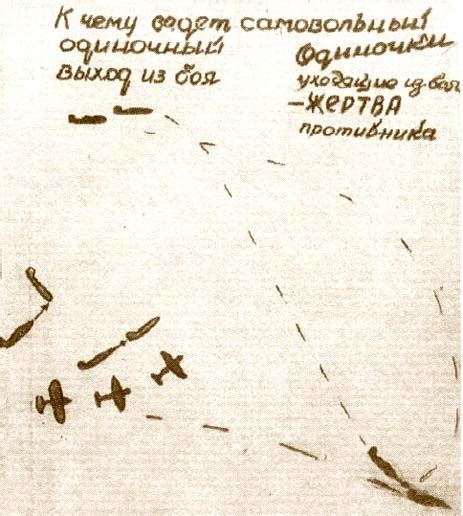 К чему ведет самовольный
одиночный
выход из боя
Одиночки
уходящие из боя
-ЖЕРТВА
противника